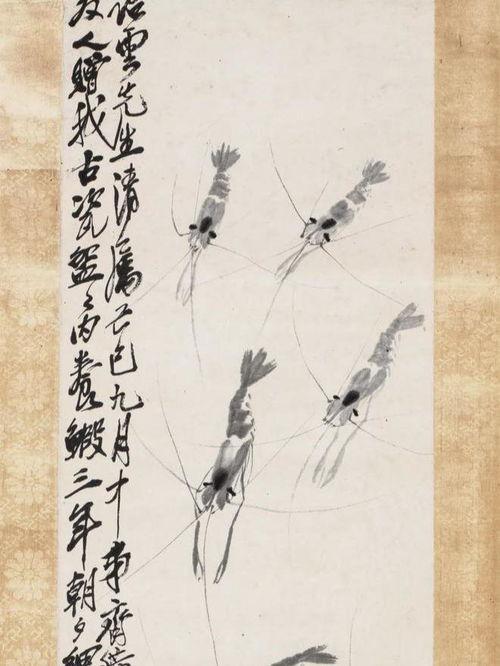 雲先生清屬己巳九月弟齊
友人贈我古瓷盌之內養蝦三年朝夕